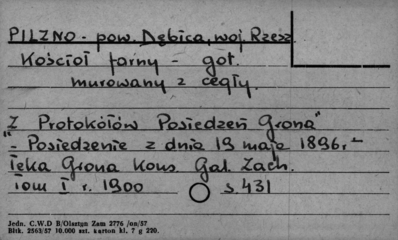 PILZNO - pow. Dębica, woj. Rzesz.
Kościoł farny - got.
murowany z cegły.
"Z Protokółów Posiedzeń Grona"
- Posiedzenie z dnia 19 maja 1896 r -
Teka Grona Kons. Gal. Zach.
Tom I r. 1900 s 431
Jedn. C.W.D B/Olsztyn Zam 2776 /on/57
Błtk. 2563/57 10.000 szt. karton kl. 7 g 220.